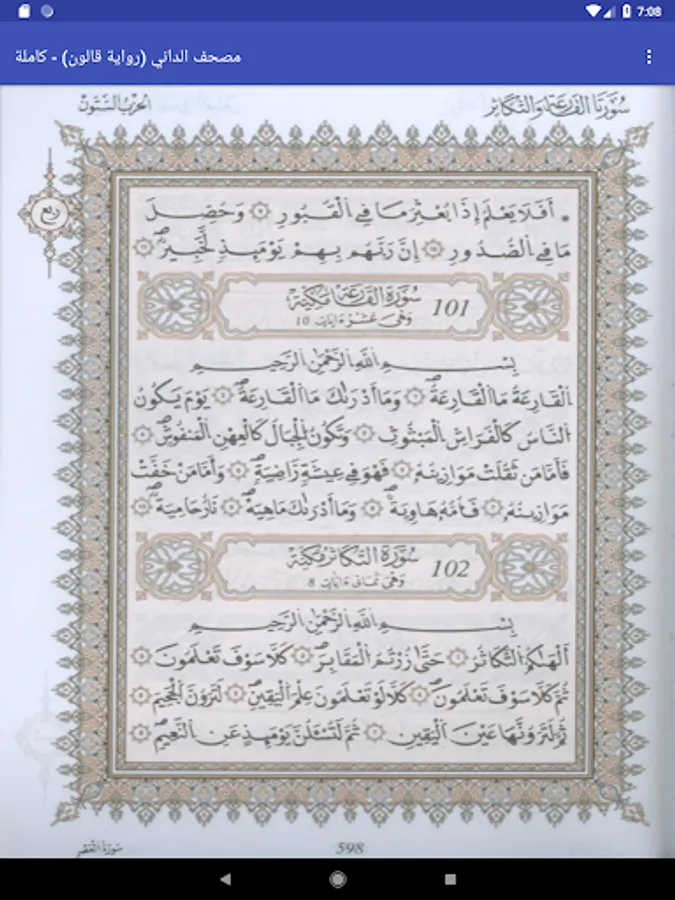 7:08
مصحف الداني (رواية قالون) - كاملة
سورتا القارعة والتكاثر
الحزب الستون
ربع
أفلا يعلم إذا بعثر ما في القبور وحصل
ما في الصدور إن ربهم بهم يومئذ لخبير
101 سورة القارعة مكية
وهي عشر ءايات 10
بسم الله الرحمن الرحيم
القارعة ما القارعة وما أدريك ما القارعة يوم يكون
الناس كالفراش المبثوث وتكون الجبال كالعهن المنفوش
فأما من ثقلت موازينه فهو في عيشة راضية وأما من خفت
موازينه فأمه هاوية وما أدريك ماهية نار حامية
102 سورة التكاثر مكية
وهي ثماني ءايات 8
بسم الله الرحمن الرحيم
ألهيكم التكاثر حتى زرتم المقابر كلا سوف تعلمون
ثم كلا سوف تعلمون كلا لو تعلمون علم اليقين لترون الجحيم
ثم لترونها عين اليقين ثم لتسئلن يومئذ عن النعيم
598
سورة العصر